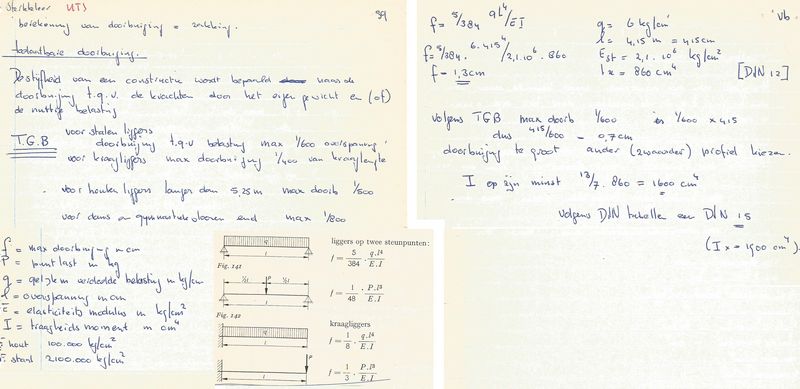 Sterkteleer UTS
39
berekening van doorbuiging = zakking.
toelaatbare doorbuiging.
De stijfheid van een constructie wordt bepaald naar de
doorbuiging t.g.v. de krachten door het eigen gewicht en (of)
de nuttige belasting
T.G.B
voor stalen liggers
doorbuiging t.g.v belasting max 1/600 overspanning
voor kraagliggers max doorbuiging 1/400 van kraaglengte
voor houten liggers langer dan 5,25 m max doorb 1/500
voor dans en gymnastiekvloeren end max 1/800
f = max doorbuiging in cm
P = puntlast in kg
q = gelijkm verdeelde belasting in kg/cm
l = overspanning in cm
E = elasticiteits modulus in kg/cm²
I = traagheids moment in cm⁴
E hout 100.000 kg/cm²
E staal 2100.000 kg/cm²
q
l
Fig. 141
liggers op twee steunpunten:
f = 5/384 · q.l⁴/E.I
½l P ½l
l
Fig. 142
f = 1/48 · P.l³/E.I
kraagliggers
q
l
f = 1/8 · q.l⁴/E.I
P
l
f = 1/3 · P.l³/E.I
vb
f = 5/384 q l⁴/E I
q = 6 kg/cm
l = 4,15 m = 415 cm
f = 5/384 . 6.415⁴/2,1.10⁶ . 860
Est = 2,1.10⁶ kg/cm²
f = 1,3 cm
Ix = 860 cm⁴
[DIN 12]
volgens TGB max doorb 1/600 is 1/600 x 415
dus 415/600 = 0,7 cm
doorbuiging te groot ander (zwaarder) profiel kiezen.
I op zijn minst 13/7 . 860 = 1600 cm⁴
volgens DIN tabellen een DIN 15
(Ix = 1900 cm⁴)